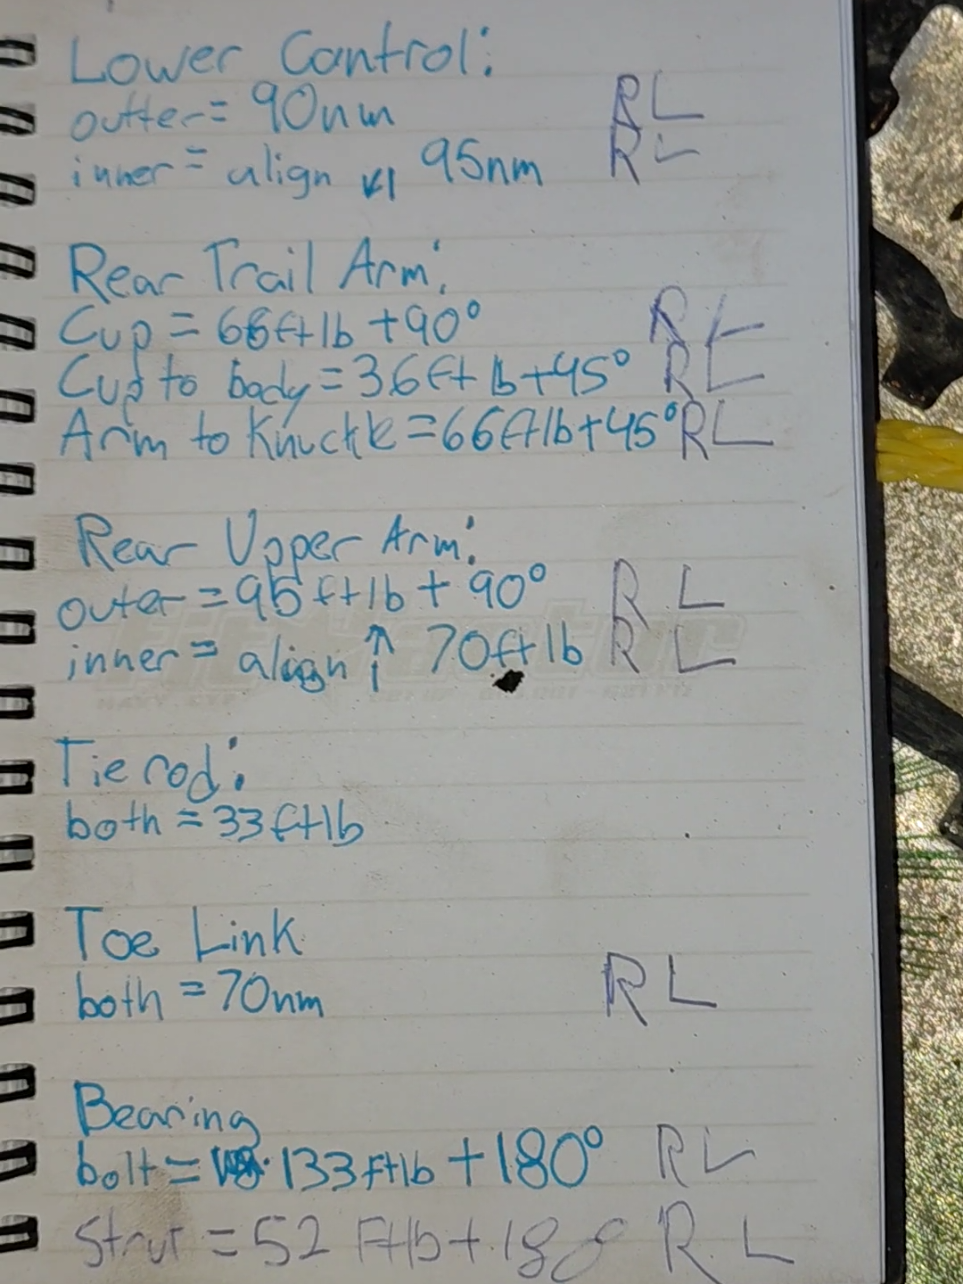 Lower Control:
outter= 90nm R L
inner= align 95nm R L
Rear Trail Arm:
Cup = 66ft lb +90° R L
Cup to body = 36ft lb +45° R L
Arm to Knuckle = 66ft lb +45° R L
Rear Upper Arm:
outer = 95ft lb + 90° R L
inner = align ↑ 70ft lb R L
Tie rod:
both = 33ft lb
Toe Link
both = 70nm R L
Bearing
bolt = 133ft lb +180° R L
Strut = 52 Ft lb + 180 R L